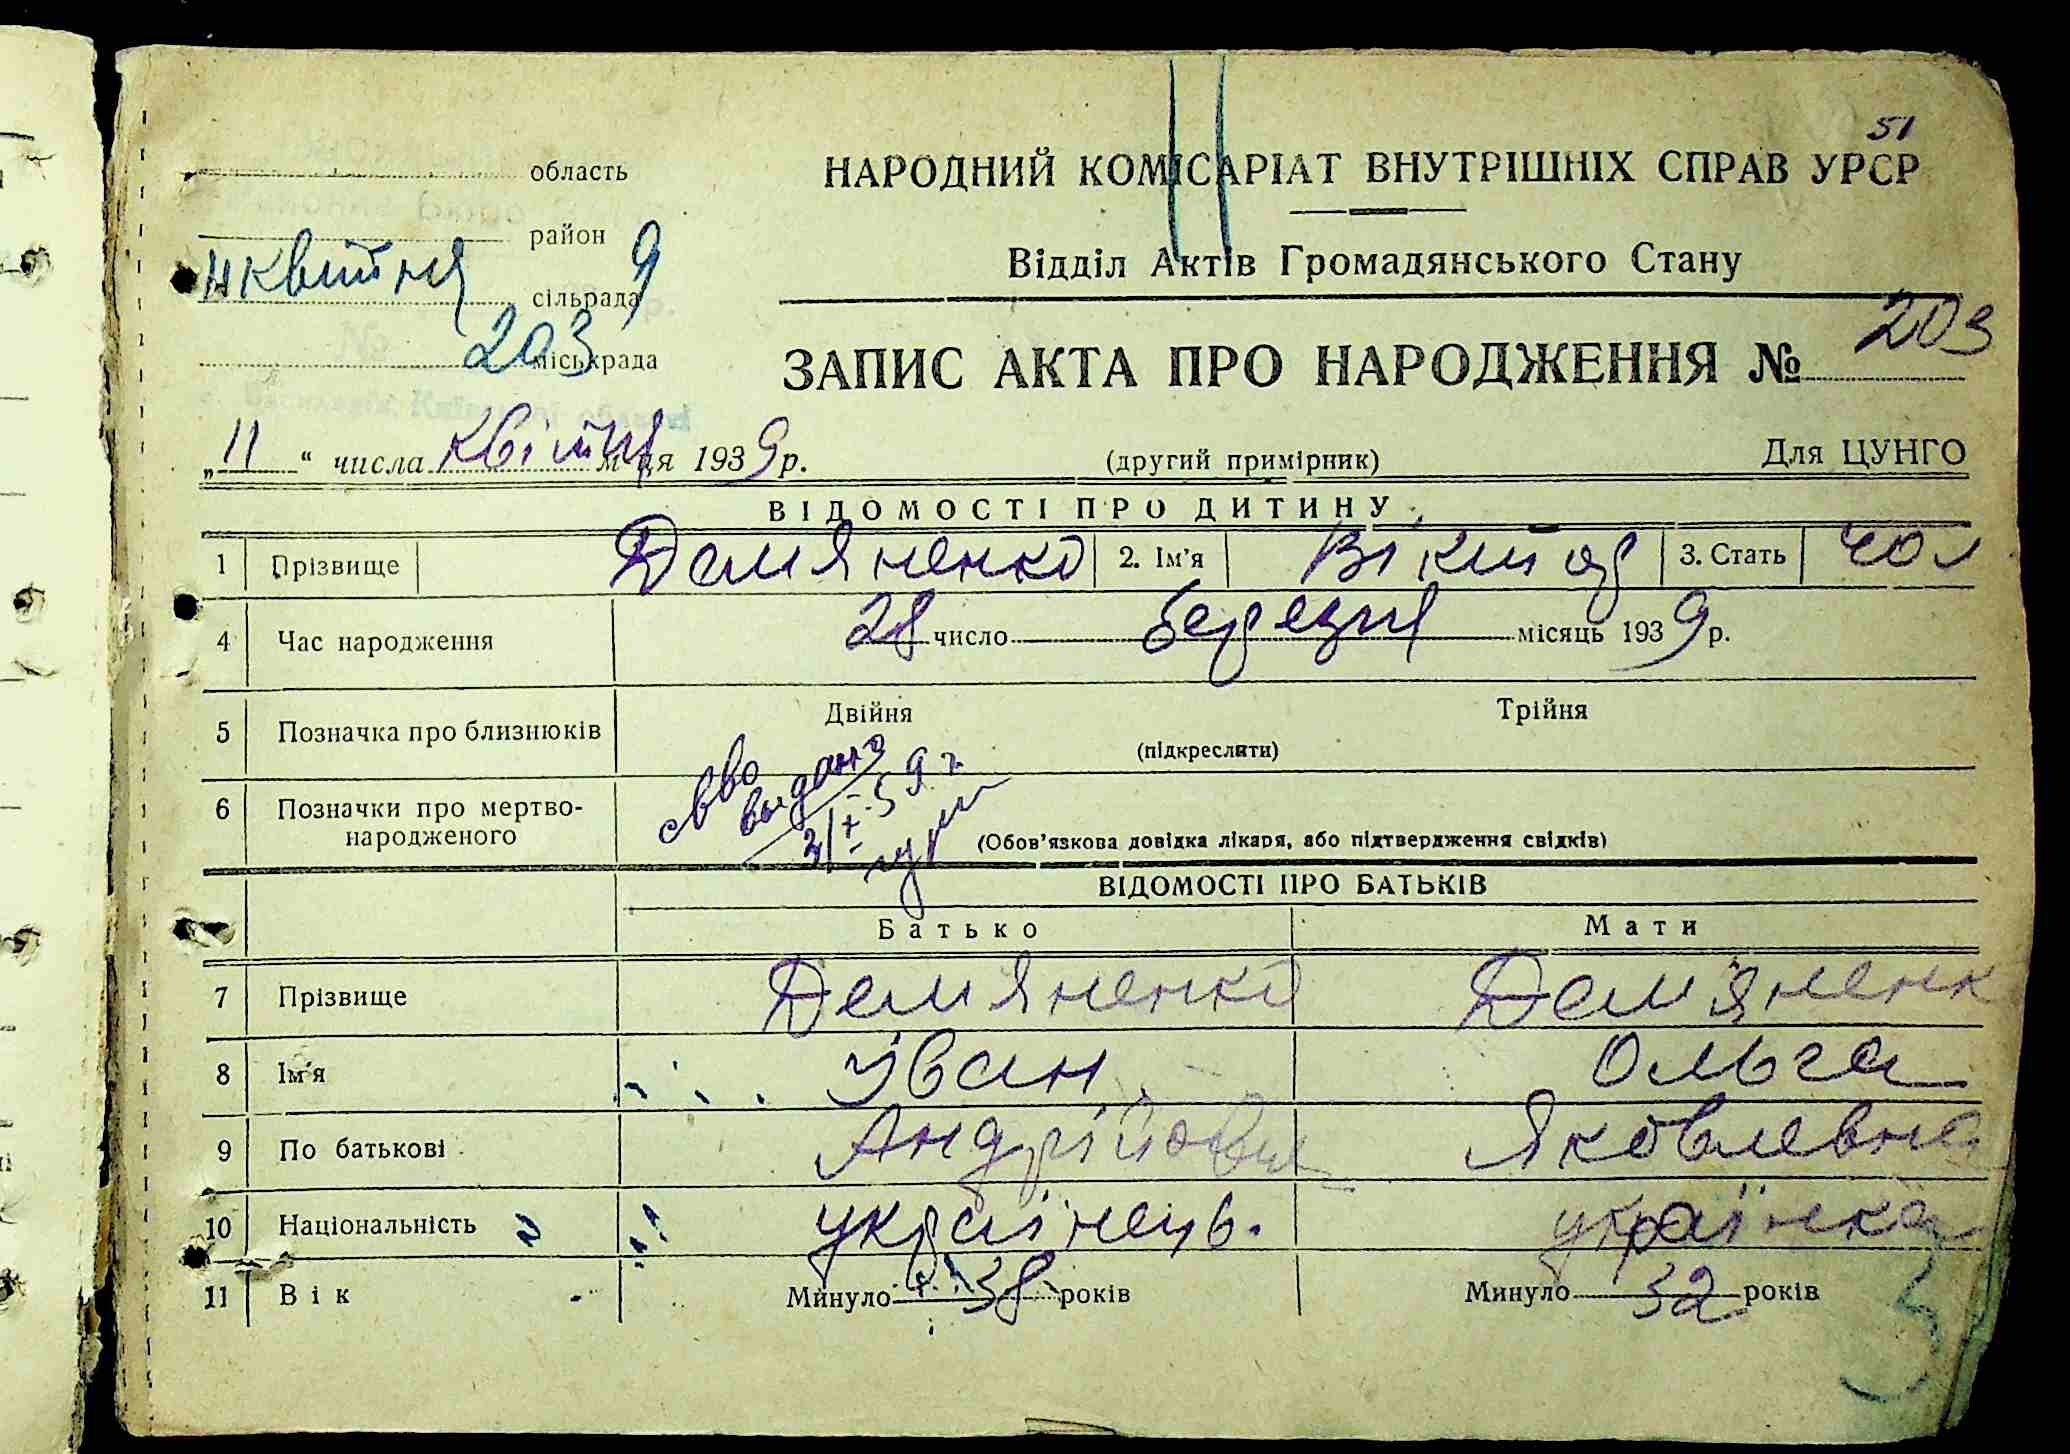 51
область
НАРОДНИЙ КОМІСАРІАТ ВНУТРІШНІХ СПРАВ УРСР
район
11 квітня 9
сільрада
Відділ Актів Громадянського Стану
203
міськрада
ЗАПИС АКТА ПРО НАРОДЖЕННЯ № 203
„11“ числа квітня м-ця 1939 р. (другий примірник) Для ЦУНГО
ВІДОМОСТІ ПРО ДИТИНУ
1 Прізвище Демяненко 2. Ім'я Віктор 3. Стать чол
4 Час народження 28 число березня місяць 1939 р.
5 Позначка про близнюків Двійня (підкреслити) Трійня
6 Позначки про мертво-
народженого (Обов'язкова довідка лікаря, або підтвердження свідків)
свво
выдано
31/X-59 г.
ВІДОМОСТІ ПРО БАТЬКІВ
Батько Мати
7 Прізвище Демяненко Дем'яненк
8 Ім'я Іван Ольга
9 По батькові Андрійович Яковлевна
10 Національність українець. українка
11 Вік Минуло 38 років Минуло 32 років
3